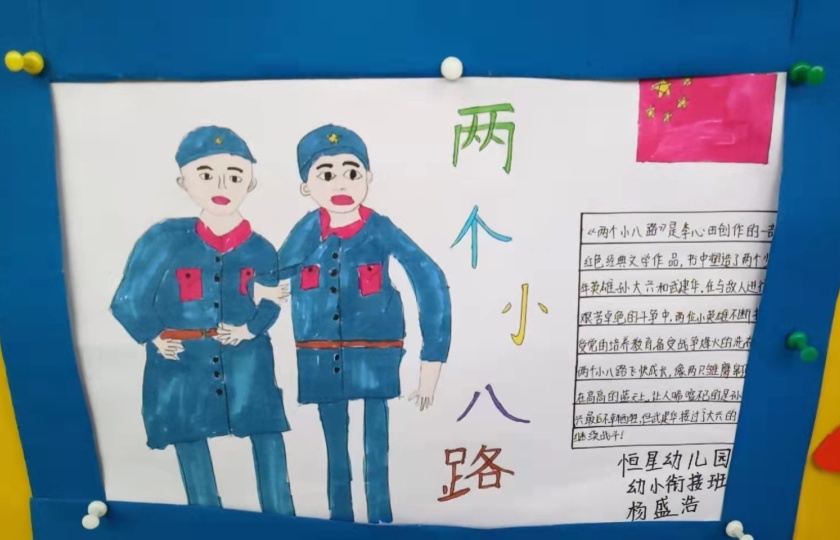 两
个
小
八
路
《两个小八路》是李心田创作的一部
红色经典文学作品，书中塑造了两个小
年英雄孙大兴和武建华，在与敌人进行
艰苦卓绝的斗争中，两位小英雄不断
受党的培养教育，备受战争烽火的洗
两个小八路飞快成长，像两只雏鹰
在高高的蓝天上，让人唏嘘不已的是孙
兴最后牺牲，但武建华接过了大兴的
继续战斗！
恒星幼儿园
幼小衔接班
杨盛浩